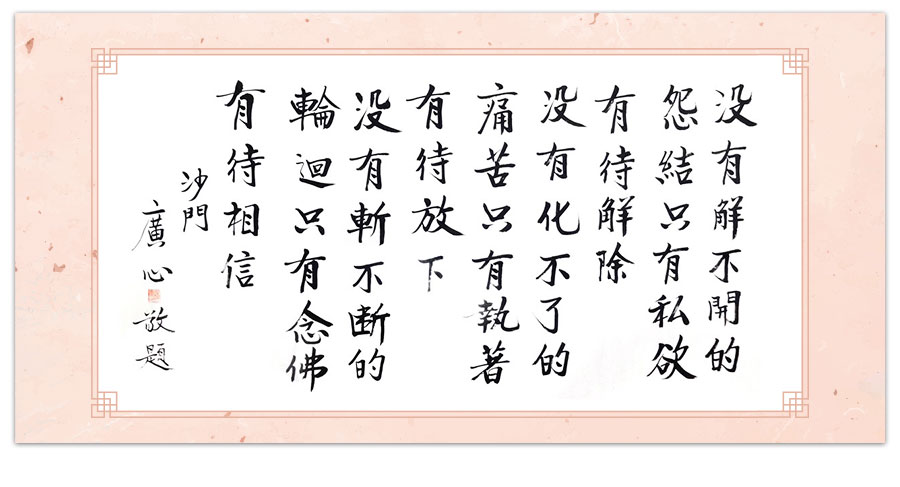 没有解不開的
怨結只有私欲
有待解除
没有化不了的
痛苦只有執著
有待放下
没有斬不断的
輪迴只有念佛
有待相信
沙門
廣心
敬題